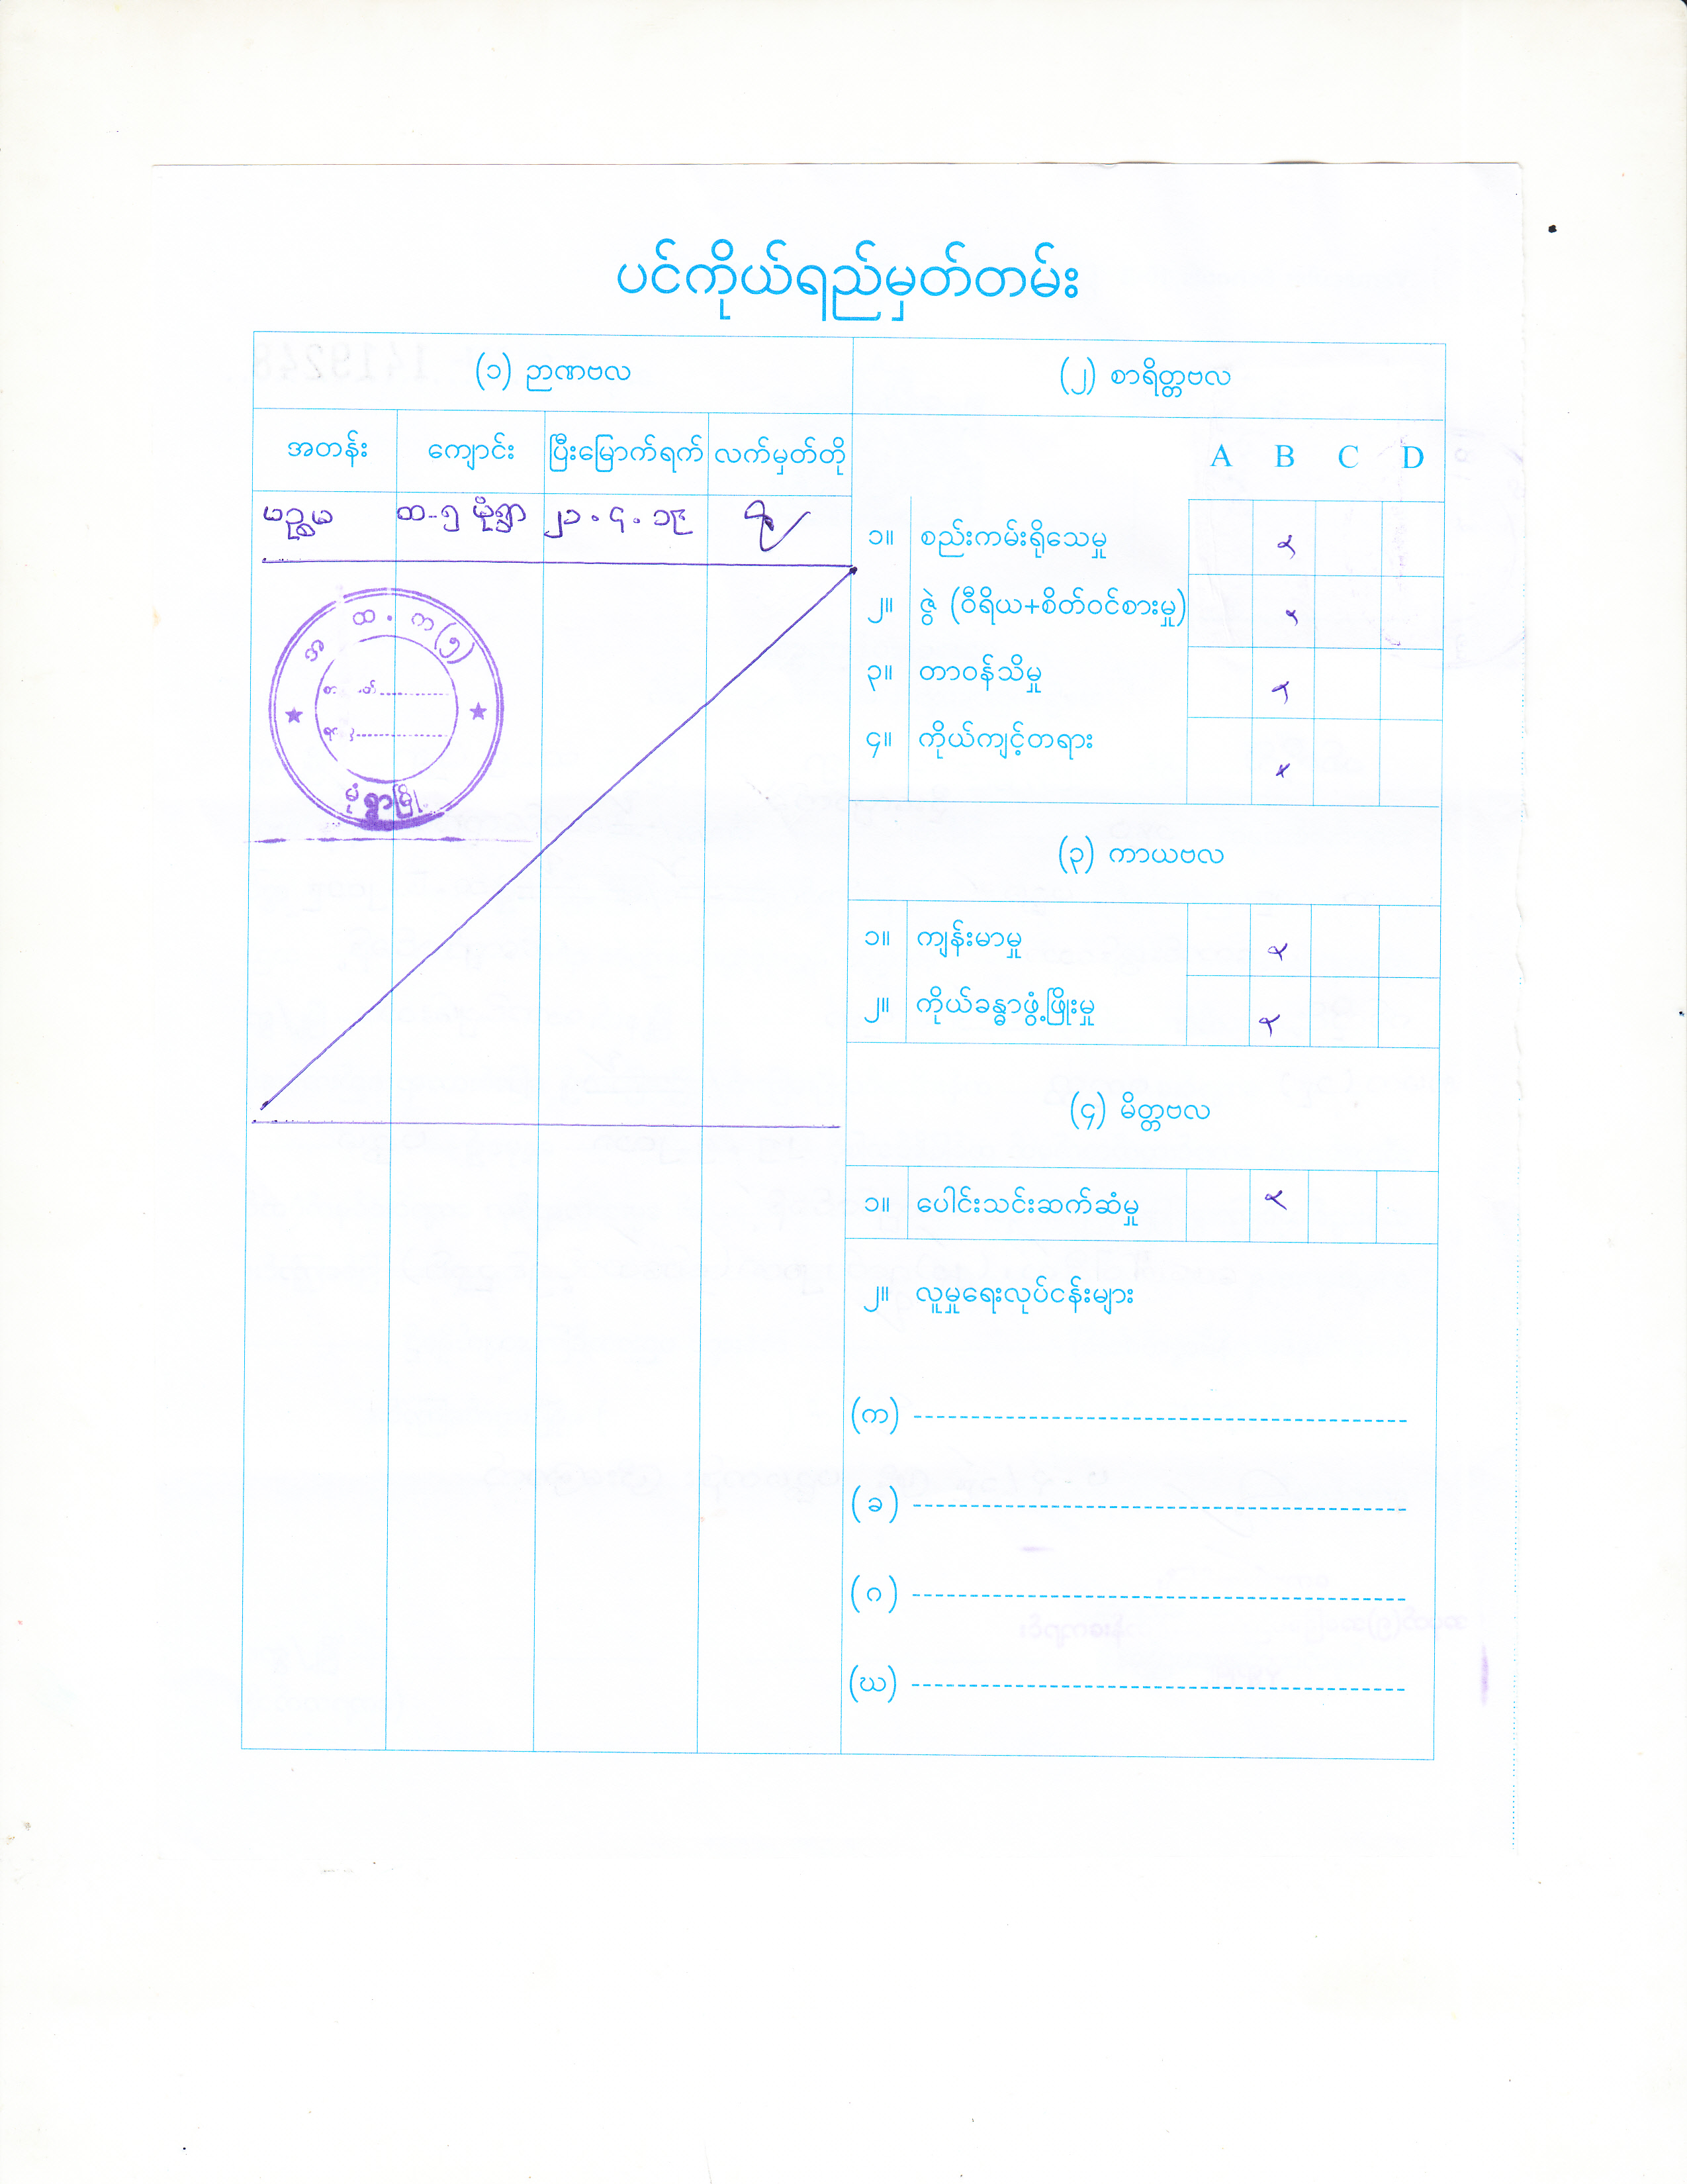 ပင်ကိုယ်ရည်မှတ်တမ်း
(၁) ဉာဏဗလ
အတန်း ကျောင်း ပြီးမြောက်ရက် လက်မှတ်တို
ပဉ္စမ ထ-၅ မုံရွာ ၂၁.၄.၁၉
အ ထ . က (၅)
မုံရွာမြို့
(၂) စာရိတ္တဗလ
A B C D
၁။ စည်းကမ်းရိုသေမှု
၂။ ဇွဲ (ဝီရိယ+စိတ်ဝင်စားမှု)
၃။ တာဝန်သိမှု
၄။ ကိုယ်ကျင့်တရား
(၃) ကာယဗလ
၁။ ကျန်းမာမှု
၂။ ကိုယ်ခန္ဓာဖွံ့ဖြိုးမှု
(၄) မိတ္တဗလ
၁။ ပေါင်းသင်းဆက်ဆံမှု
၂။ လူမှုရေးလုပ်ငန်းများ
(က)
(ခ)
(ဂ)
(ဃ)